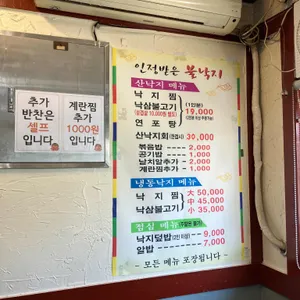 추가
반찬은
셀프
입니다
계란찜
추가
1000원
입니다
인정받은 불낙지
산낙지 메뉴
낙지찜
낙삼불고기
(1인분)
19,000
연포탕
산낙지회 30,000
볶음밥 2,000
공기밥 1,000
날치알추가 2,000
계란찜추가 1,000
냉동낙지 메뉴
낙지찜 대 50,000
중 45,000
낙삼불고기 소 35,000
점심 메뉴
낙지덮밥 9,000
알밥 7,000
- 모든 메뉴 포장됩니다 -